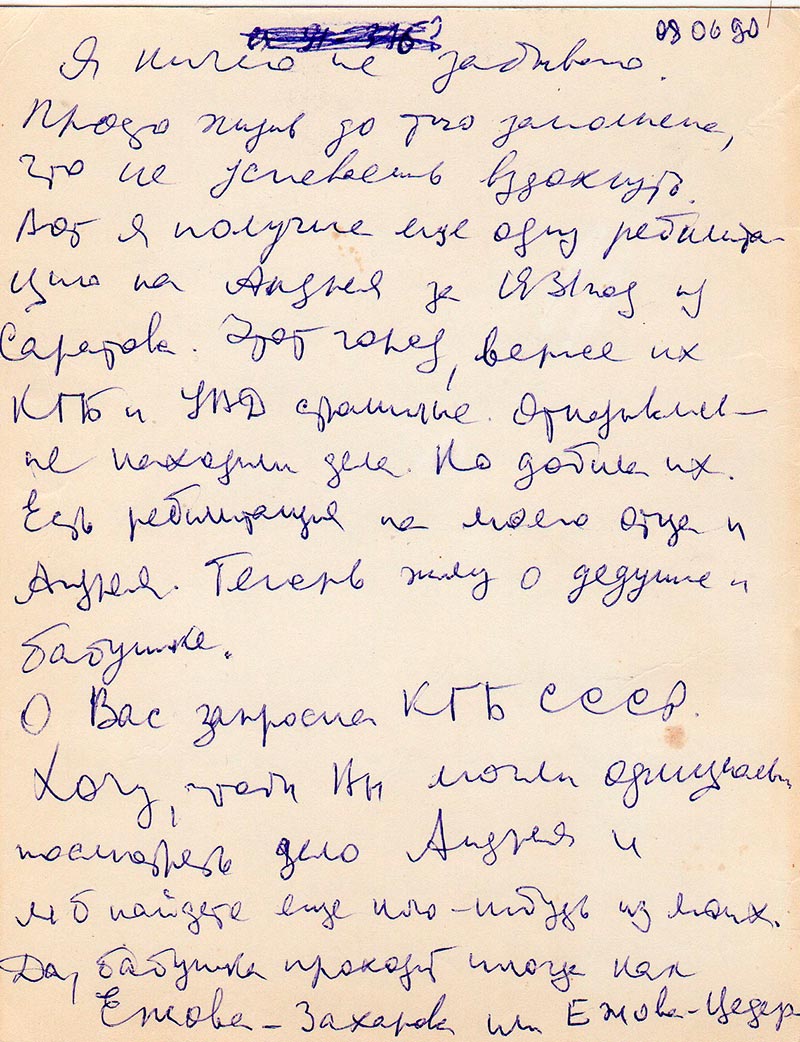 09 06 90
Я ничего не забываю.
Просто жизнь до того заполнена,
что не успеваешь вздохнуть.
Вот я получила еще одну реабилита-
цию на Андрея за 1931 год из
Саратова. Этот город, вернее их
КГБ и УВД страшные. Отказывались –
не находили дела. Но добила их.
Есть реабилитация на моего отца и
Андрея. Теперь жду о дедушке и
бабушке.
О Вас запросила КГБ СССР.
Хочу, чтобы Вы могли однажды
посмотреть дело Андрея и
м б найдете еще кого-нибудь из моих.
Да, бабушка проходит иногда как
Ежова-Захарова или Ежова-Цедер